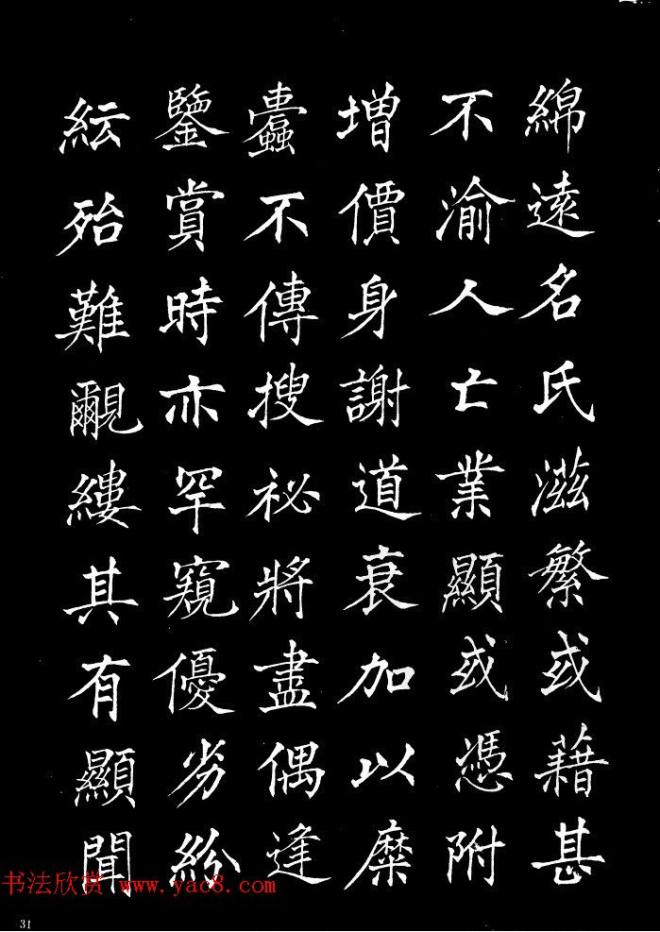 綿遠名氏滋繁或藉甚
不渝人亡業顯或憑附
增價身謝道衰加以糜
蠹不傳搜祕將盡偶逢
鑒賞時亦罕窺優劣紛
紜殆難覼縷其有顯聞
书法欣赏 www.yac8.com
31